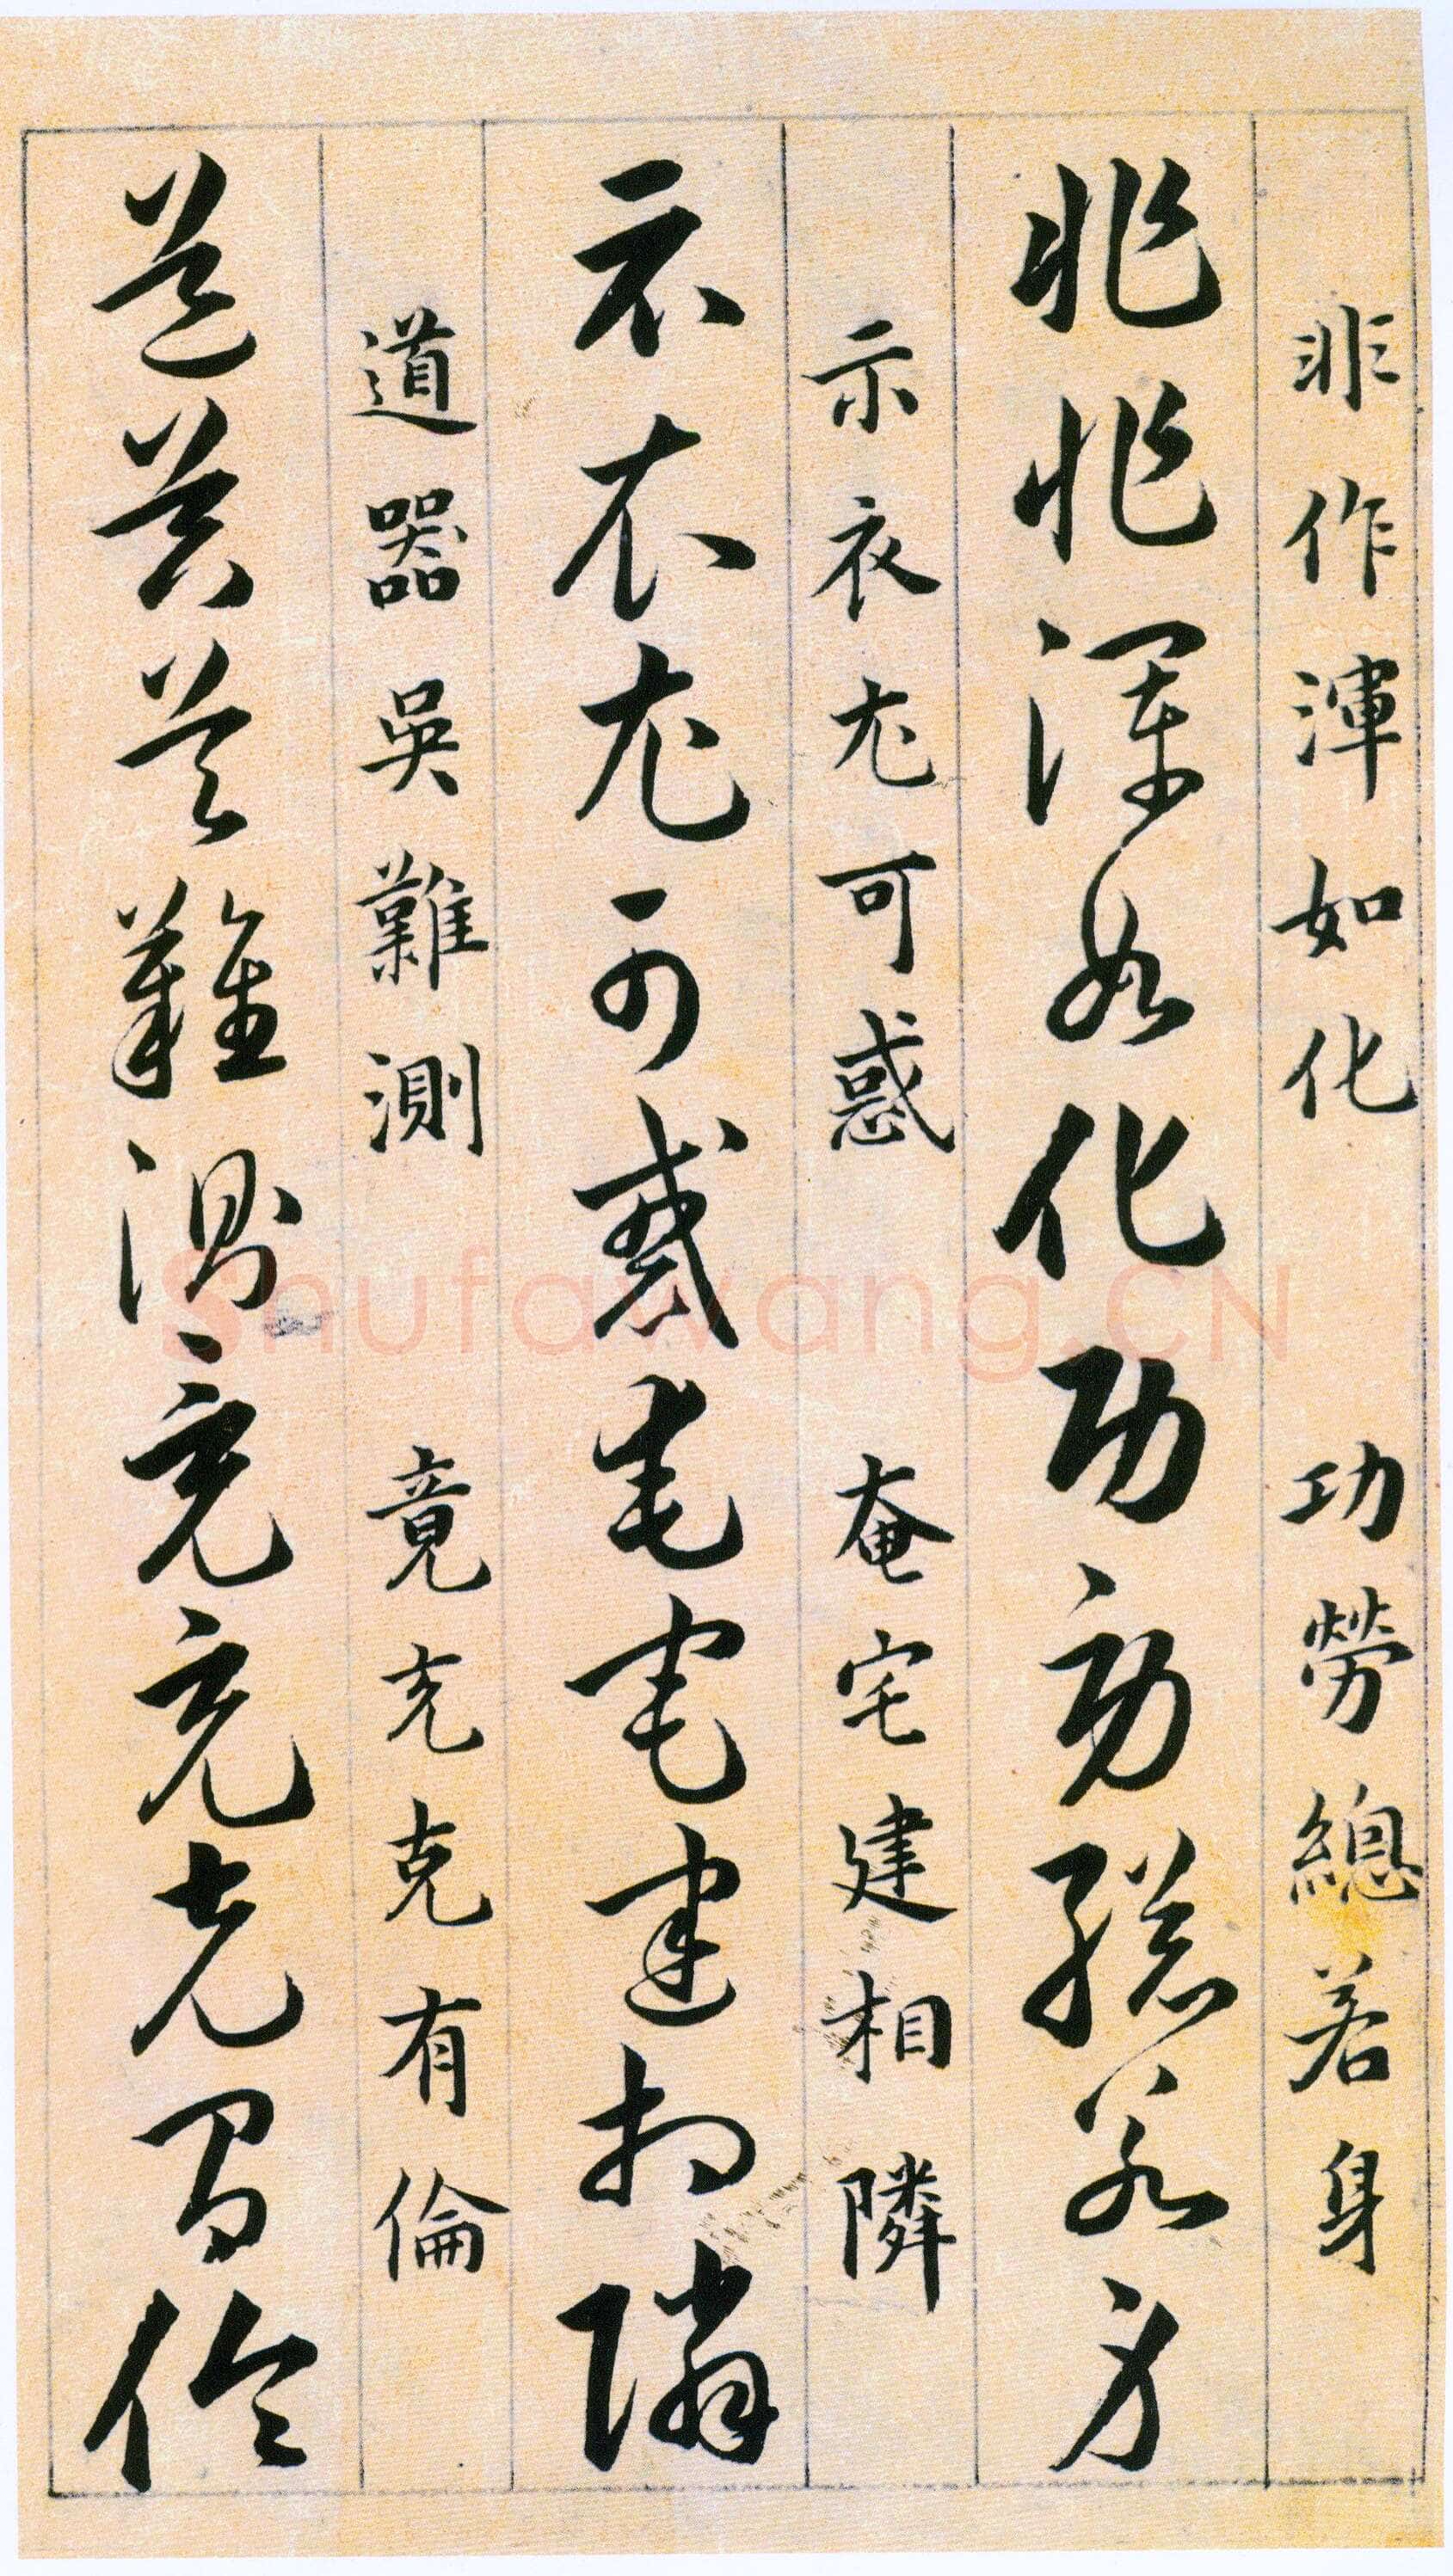 非作渾如化　功勞總若身
非作渾如化功勞總若身
示衣尤可惑　奄宅建相隣
示衣尤可惑奄宅建相隣
道器吳難測　竟充克有倫
道器吳難測竟充克有倫
Shufawang.CN